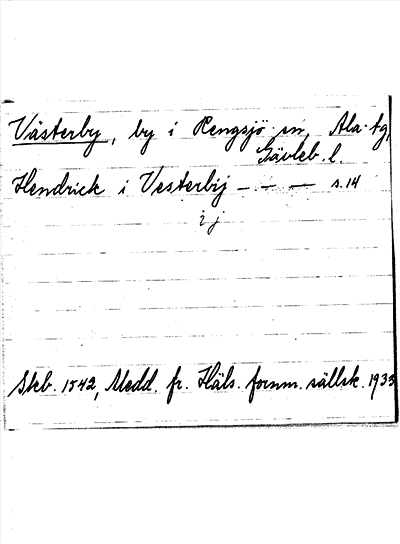 Västerby, by i Rengsjö sn, Ala tg,
Gävleb. l.
Hendrick i Vesterbij - - - s. 14
ij
Skb. 1542, Medd. fr. Häls. fornm. sällsk. 1935